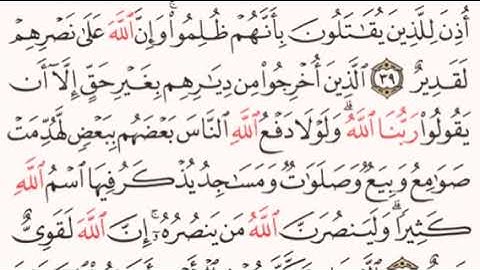 أُذِنَ لِلَّذِينَ يُقَٰتَلُونَ بِأَنَّهُمْ ظُلِمُوا۟ ۚ وَإِنَّ ٱللَّهَ عَلَىٰ نَصْرِهِمْ
لَقَدِيرٌ ٣٩ ٱلَّذِينَ أُخْرِجُوا۟ مِن دِيَٰرِهِم بِغَيْرِ حَقٍّ إِلَّآ أَن
يَقُولُوا۟ رَبُّنَا ٱللَّهُ ۗ وَلَوْلَا دَفْعُ ٱللَّهِ ٱلنَّاسَ بَعْضَهُم بِبَعْضٍ لَّهُدِّمَتْ
صَوَٰمِعُ وَبِيَعٌ وَصَلَوَٰتٌ وَمَسَٰجِدُ يُذْكَرُ فِيهَا ٱسْمُ ٱللَّهِ
كَثِيرًا ۗ وَلَيَنصُرَنَّ ٱللَّهُ مَن يَنصُرُهُۥٓ ۗ إِنَّ ٱللَّهَ لَقَوِىٌّ